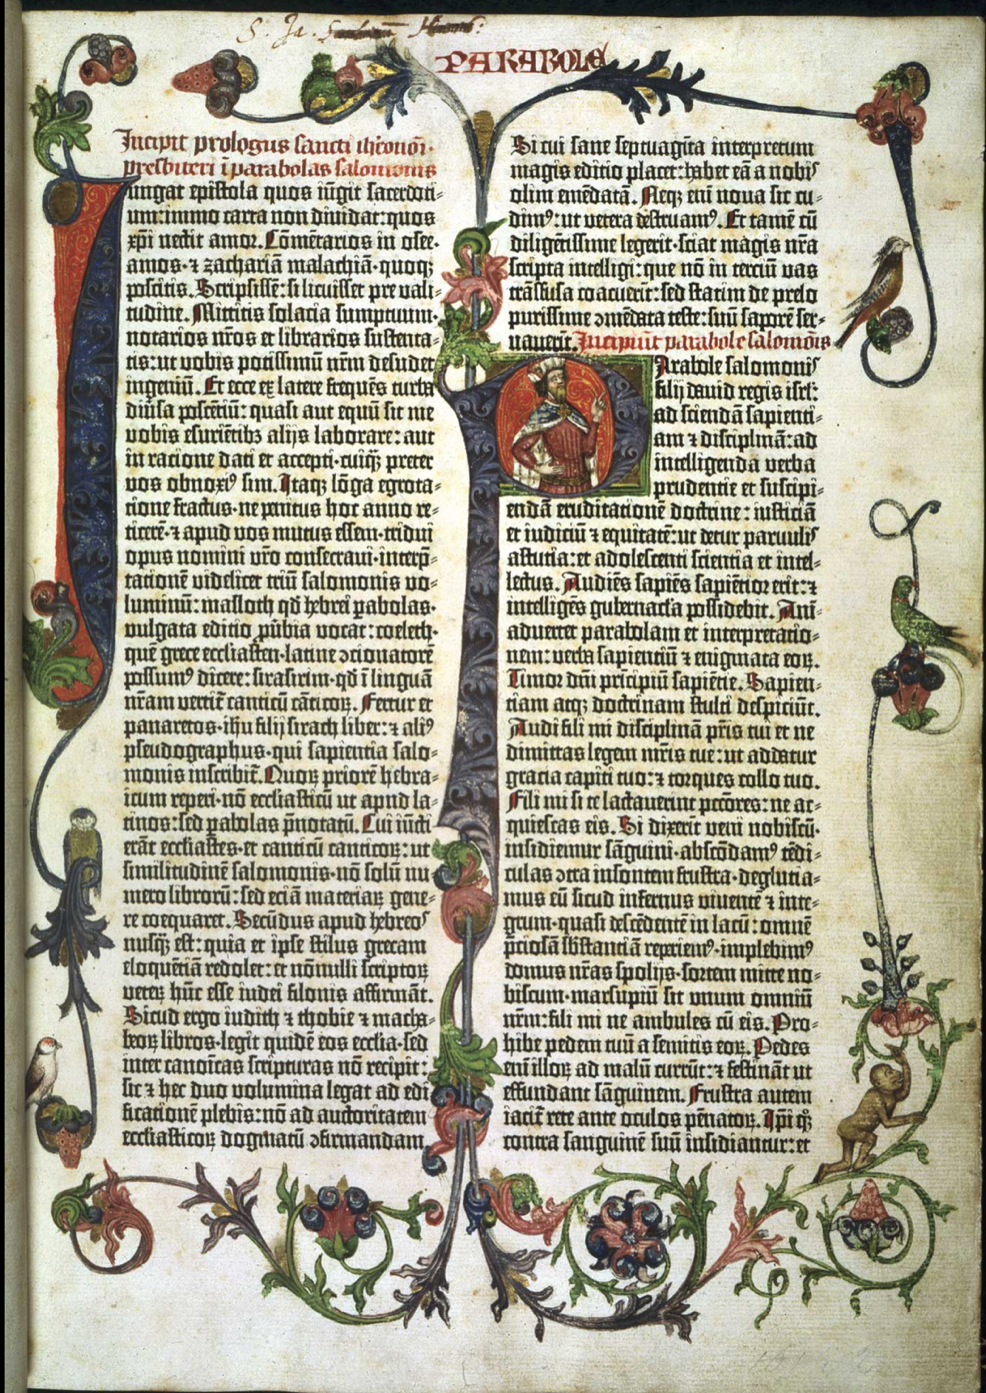 PARABOLE
Incipit prologus sancti iheronimi
presbiteri ī parabolas salomonis
Iungat epistola quos iūgit sacerdoti-
um: immo carta non diuidat: quos
xpī nectit amor. Cōmētarios in osee·
amos· ⁊ zachariā malachiā· quoqꝫ
poscitis. Scripsissē: si licuisset pre vali-
tudine. Mittitis solacia sumptuum·
notarios nr̄os et librarios sustenta-
tis: ut vobis potissimū nr̄m desudet
ingeniū. Et ecce ex latere frequēs turba
diūsa poscētiū: quasi aut equū sit me
vobis esuriētibꝫ alijs laborare: aut
in ratione dati et accepti· cuiqꝫ preter
vos obnoxiꝰ sim. Itaqꝫ lōga egrota-
tione fractus· ne penitus hoc anno re-
ticerē· ⁊ apud vos mutus essem· tridui
opus nomini vr̄o consecraui· interp̄-
tationē videlicet triū salomonis vo-
luminū: masloth qd̄ hebrei ꝑabolas·
vulgata editio ꝓūbia vocat: coeleth·
quē grece ecclesiasten· latine ↄcionatorē
possumꝰ dicere: sirasirim· qd̄ ī linguā
nr̄am vertit̄ canticū cāticoꝝ. Fertur et
panaretos· ihū filij sirach liber: ⁊ aliꝰ
pseudographus· qui sapientia salo-
monis inscribit̄. Quoꝝ priorē hebra-
icum reperi· nō ecclesiasticū ut apud la-
tinos: sed ꝑabolas p̄notatū. Cui iūcti
erāt ecclesiastes· et canticū canticoꝝ: ut
similitudinē salomonis· nō solū nu-
mero libroꝝ: sed eciā materiaꝝ gene-
re coequaret. Secūdus apud hebreos
nusqꝫ est: quia et ipse stilus grecam
eloquētiā redolet: et nōnulli scriptoꝝ
veteꝝ hūc esse iudei filonis affirmāt.
Sicud ergo iudith ⁊ thobie ⁊ macha-
beoꝝ libros· legit quidē eos ecclesia· sed
inter canoīcas scripturas nō recipit:
sic ⁊ hec duo volumina legat ad edi-
ficationē plebis: nō ad auctoritatem
ecclesiasticoꝝ dogmatū ↄfirmandam.
Si cui sane septuagīta interpretum
magis editio placet: habet eā a nobis
olim emēdatā. Neqꝫ enī noua sic cu-
dimꝰ: ut vetera destruamꝰ. Et tamē cū
diligētissime legerit· sciat magis nr̄a
scripta intelligi: que nō in terciū vas
trāsfusa coacuerūt: sed statim de prelo
purissime ↄmēdata teste: suū saporē ser-
uauerūt. Incipiūt parabole salomōis
Parabole salomonis
filij dauid regis isrl̄:
ad sciendā sapienti-
am ⁊ disciplinā: ad
intelligenda verba
prudentie et suscipi-
endā eruditationē doctrine: iusticiā
et iudiciū ⁊ equitatē: ut detur paruulis
astutia: et adolescenti scientia et intel-
lectus. Audiēs sapiēs sapiētior erit: ⁊
intelligēs gubernacl̄a possidebit. Ani-
aduertet parabolam et interpretatio-
nem: verba sapientiū ⁊ enigmata eoꝝ.
Timor dn̄i principiū sapiētie. Sapien-
tiam atqꝫ doctrinam stulti despiciūt.
Audi fili mi disciplinā pr̄is tui et ne
dimittas legem mr̄is tue: ut addatur
gracia capiti tuo: ⁊ torques collo tuo.
Fili mi si te lactauerint pctōres: ne ac-
quiescas eis. Si dixerit veni nobiscū·
insidiemur sāguini· abscōdamꝰ tēdi-
culas ↄtra insontem frustra· deglutia-
mus eū sicud infernus viuentē ⁊ inte-
grum· quasi descēdentē in lacū: omnē
p̄ciosā sb̄stantiā reperiemꝰ· implebimꝰ
domus nr̄as spolijs· sortem mitte no-
biscum· marsupiū sit vnum omniū
nr̄m: fili mi ne ambules cū eis. Pro-
hibe pedem tuū a semitis eoꝝ. Pedes
enī illoꝝ ad malū currūt: ⁊ festināt ut
effundant sāguinem. Frustra autem
iacit̄ rete ante oculos pēnatoꝝ. Ipī qꝫ
contra sanguinē suū insidiantur: et